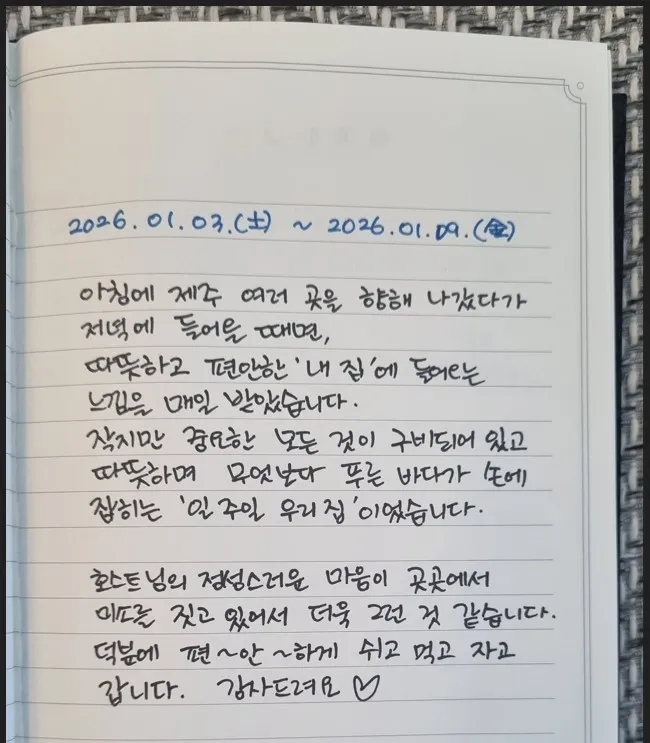 2026.01.03.(土) ~ 2026.01.09.(金)
아침에 제주 여러 곳을 향해 나갔다가
저녁에 들어올 때면,
따뜻하고 편안한 '내 집'에 들어오는
느낌을 매일 받았습니다.
작지만 중요한 모든 것이 구비되어 있고
따뜻하며 무엇보다 푸른 바다가 손에
잡히는 '일주일 우리집'이었습니다.
호스트님의 정성스러운 마음이 곳곳에서
미소를 짓고 있어서 더욱 그런 것 같습니다.
덕분에 편~안~하게 쉬고 먹고 자고
갑니다. 감사드려요 ♡